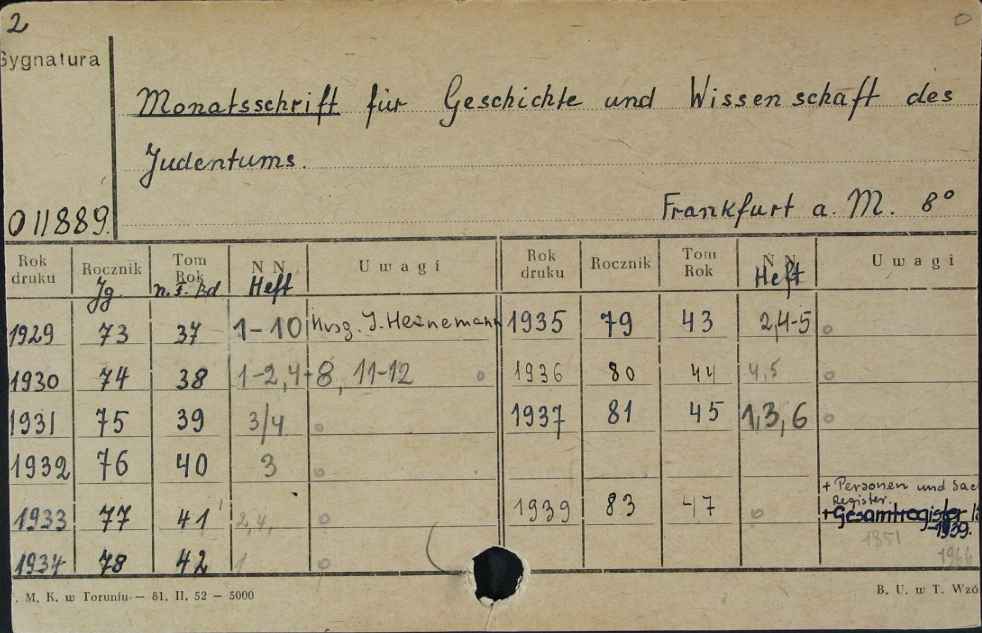 2
Sygnatura
Monatsschrift für Geschichte und Wissenschaft des
Judentums.
011889.
Frankfurt a. M. 8°
Rok druku Rocznik Tom Rok N N Uwagi Rok druku Rocznik Tom Rok N N Uwagi
Jg. n. F. Bd Heft Heft
1929 73 37 1-10 Hrsg. J. Heinemann 1935 79 43 2,4-5
1930 74 38 1-2, 4-8, 11-12 1936 80 44 4,5
1931 75 39 3/4 1937 81 45 1,3,6
1932 76 40 3
1933 77 41 2,4, 1939 83 47 + Personen und Sac
Register.
+ Gesamtregister
-1939.
1851
1966
1934 78 42 1
. M. K. w Toruniu — 81. II. 52 — 5000
B. U. w T. Wzó